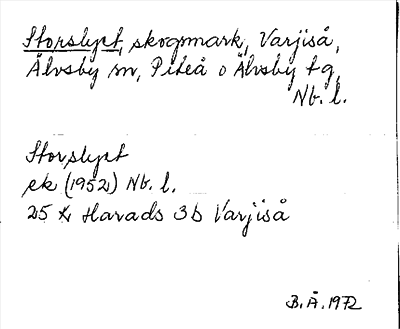 Storslyet, skogmark, Varjiså,
Älvsby sn, Piteå o Älvsby tg,
Nb. l.
Storslyet
ek (1952) Nb. l.
25 K Harads 3b Varjiså
B. Å. 1972